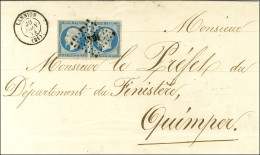 Monsieur
Monsieur le Préfet du
Département du Finistère,
Quimper.